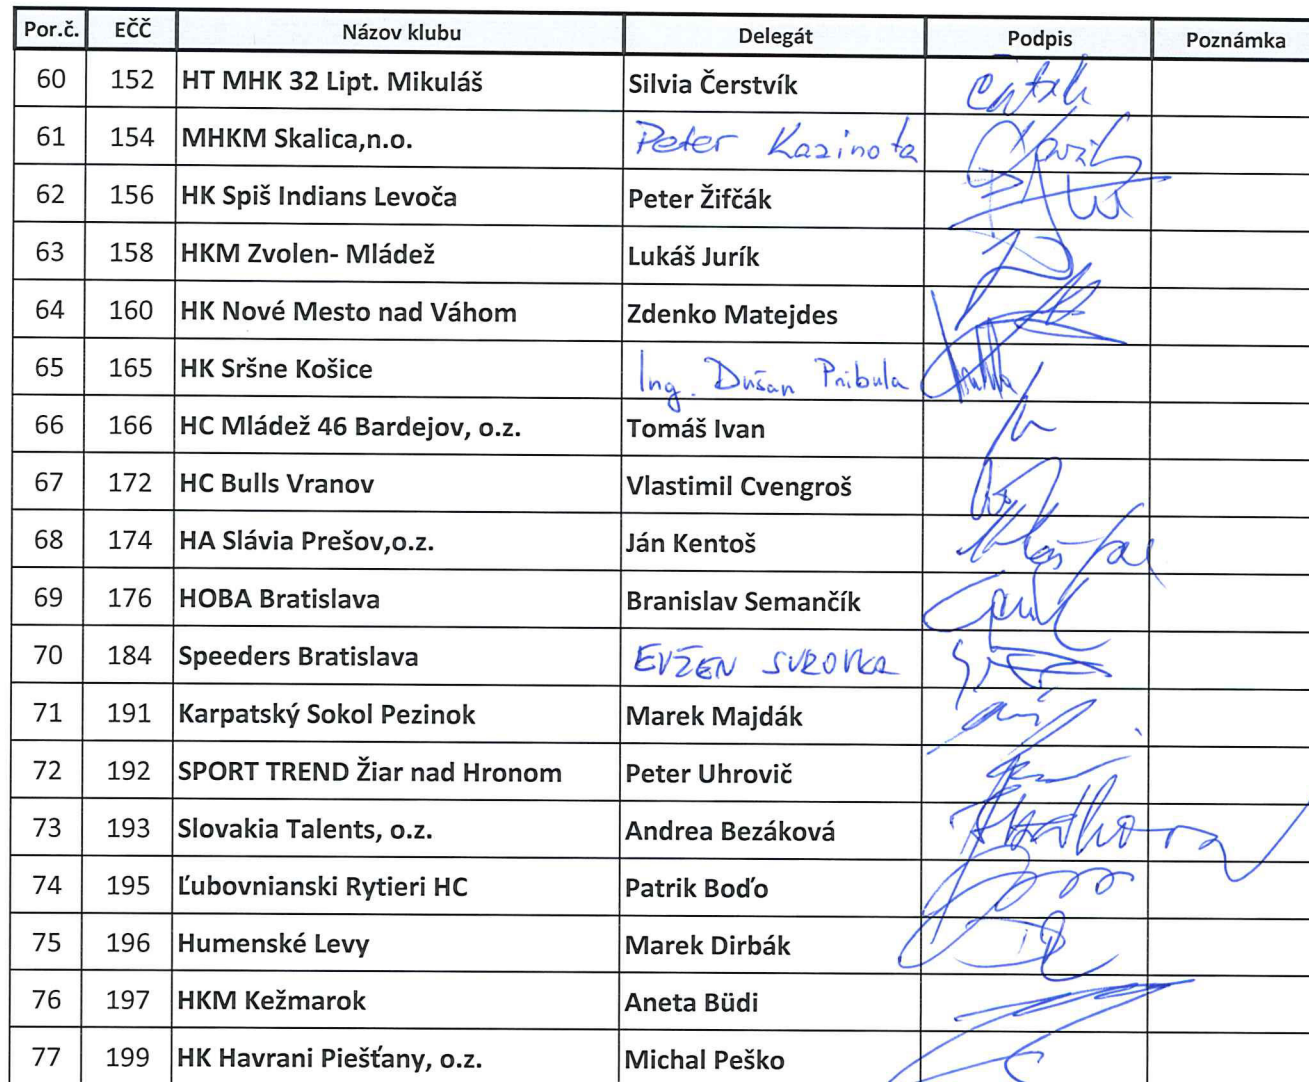 Por.č. EČČ Názov klubu Delegát Podpis Poznámka
60 152 HT MHK 32 Lipt. Mikuláš Silvia Čerstvík
61 154 MHKM Skalica,n.o. Peter Kazinota
62 156 HK Spiš Indians Levoča Peter Žifčák
63 158 HKM Zvolen- Mládež Lukáš Jurík
64 160 HK Nové Mesto nad Váhom Zdenko Matejdes
65 165 HK Sršne Košice Ing. Dušan Pribula
66 166 HC Mládež 46 Bardejov, o.z. Tomáš Ivan
67 172 HC Bulls Vranov Vlastimil Cvengroš
68 174 HA Slávia Prešov,o.z. Ján Kentoš
69 176 HOBA Bratislava Branislav Semančík
70 184 Speeders Bratislava EVŽEN SUROVKA
71 191 Karpatský Sokol Pezinok Marek Majdák
72 192 SPORT TREND Žiar nad Hronom Peter Uhrovič
73 193 Slovakia Talents, o.z. Andrea Bezáková
74 195 Ľubovnianski Rytieri HC Patrik Boďo
75 196 Humenské Levy Marek Dirbák
76 197 HKM Kežmarok Aneta Büdi
77 199 HK Havrani Piešťany, o.z. Michal Peško